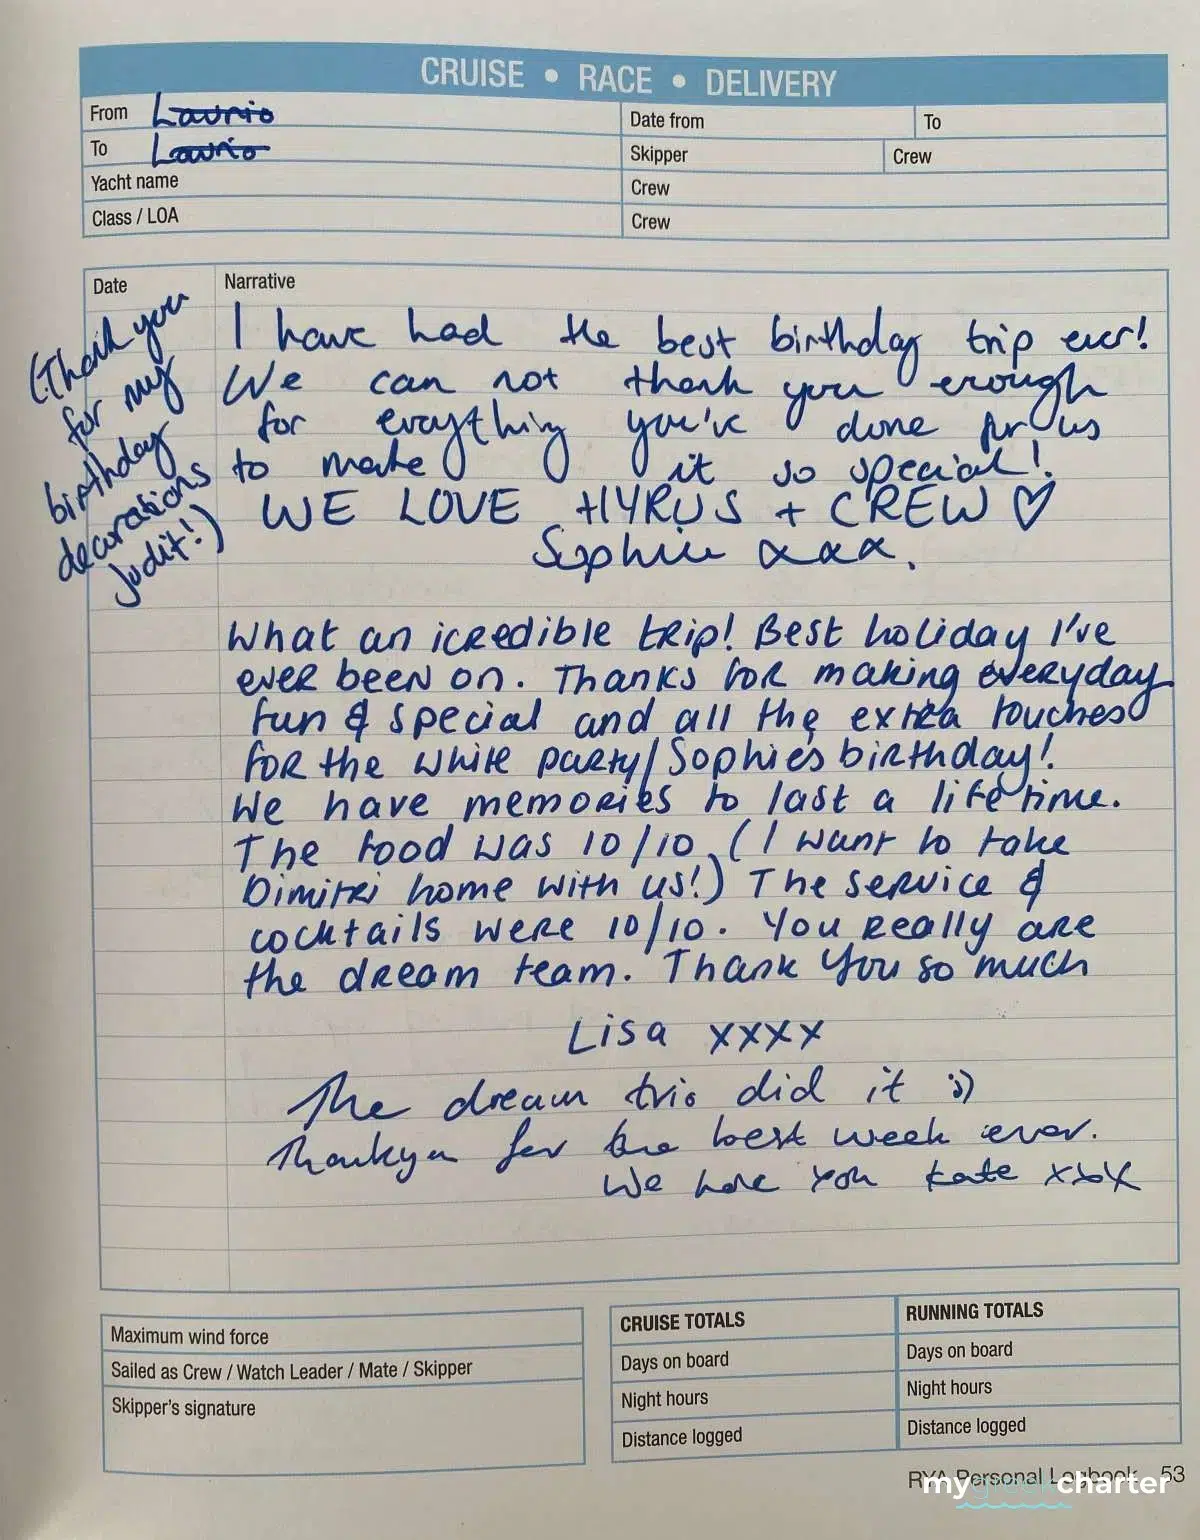 CRUISE • RACE • DELIVERY
From Lavrio
To Lavrio
Yacht name
Class / LOA
Date from
To
Skipper
Crew
Crew
Crew
Date
Narrative
(Thank you
for my
birthday
decorations
Judit!)
I have had the best birthday trip ever!
We can not thank you enough
for everything you've done for us
to make it so special!
WE LOVE HYRUS + CREW ♡
Sophie xxx.
What an icredible trip! Best holiday I've
ever been on. Thanks for making everyday
fun & special and all the extra touches
for the white party/Sophie's birthday!
We have memories to last a life time.
The food was 10/10 (I want to take
Dimitri home with us!) The service &
cocktails were 10/10. You really are
the dream team. Thank you so much
Lisa xxxx
The dream trio did it :)
Thankyou for the best week ever.
We love you Kate xxxx
Maximum wind force
Sailed as Crew / Watch Leader / Mate / Skipper
Skipper's signature
CRUISE TOTALS
Days on board
Night hours
Distance logged
RUNNING TOTALS
Days on board
Night hours
Distance logged
RYA Personal Logbook 53
mygreekcharter